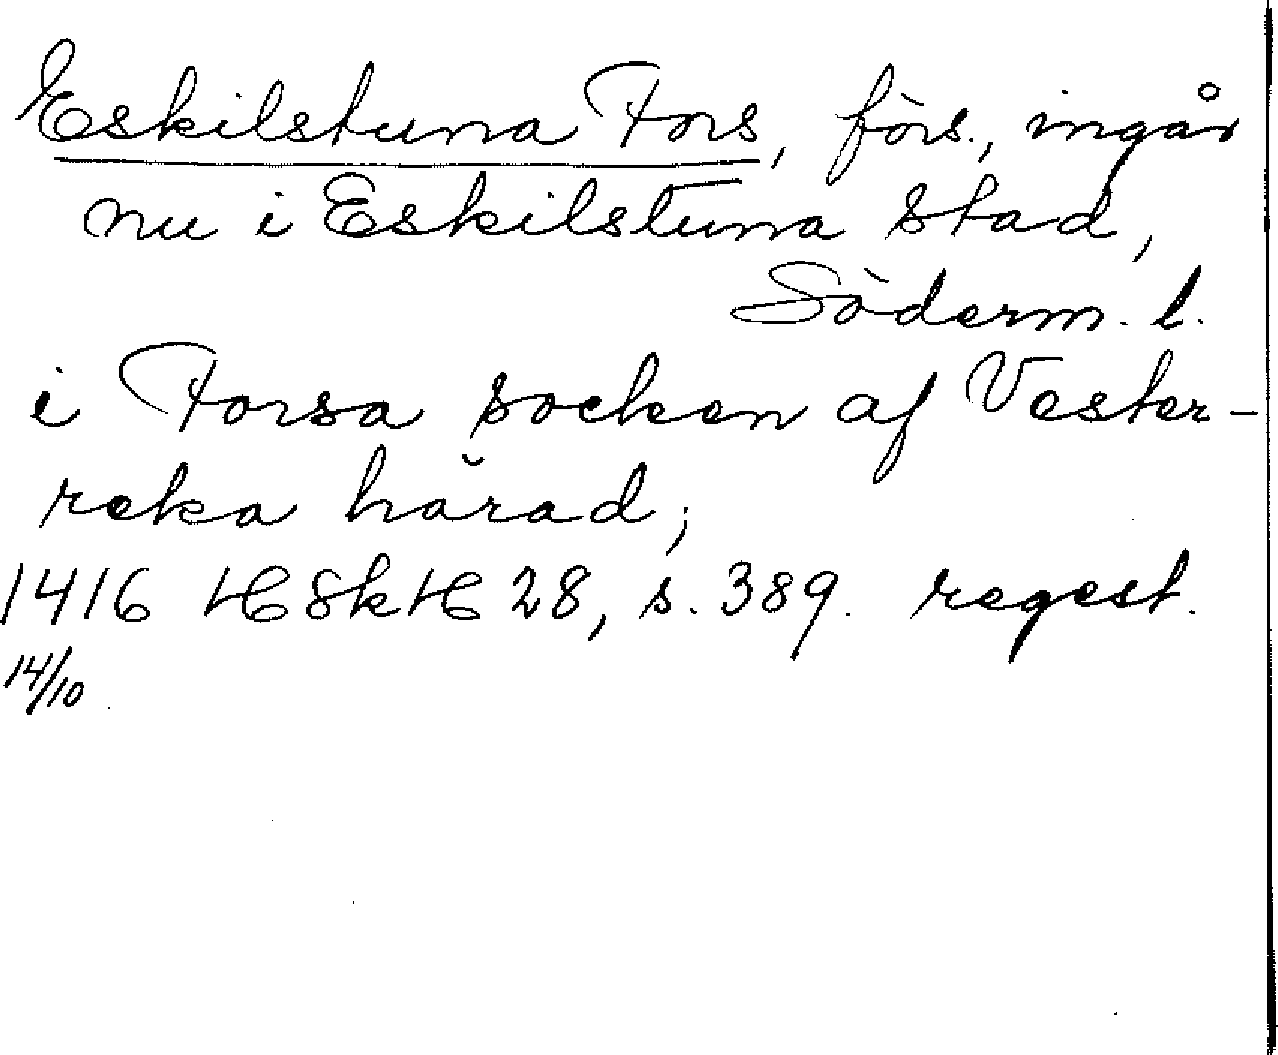 Eskilstuna Fors, förs., ingår
nu i Eskilstuna stad,
Söderm. l.
i Forsa socken af Vester-
reka härad;
1416 HSkH 28, s. 389. regest.
14/10